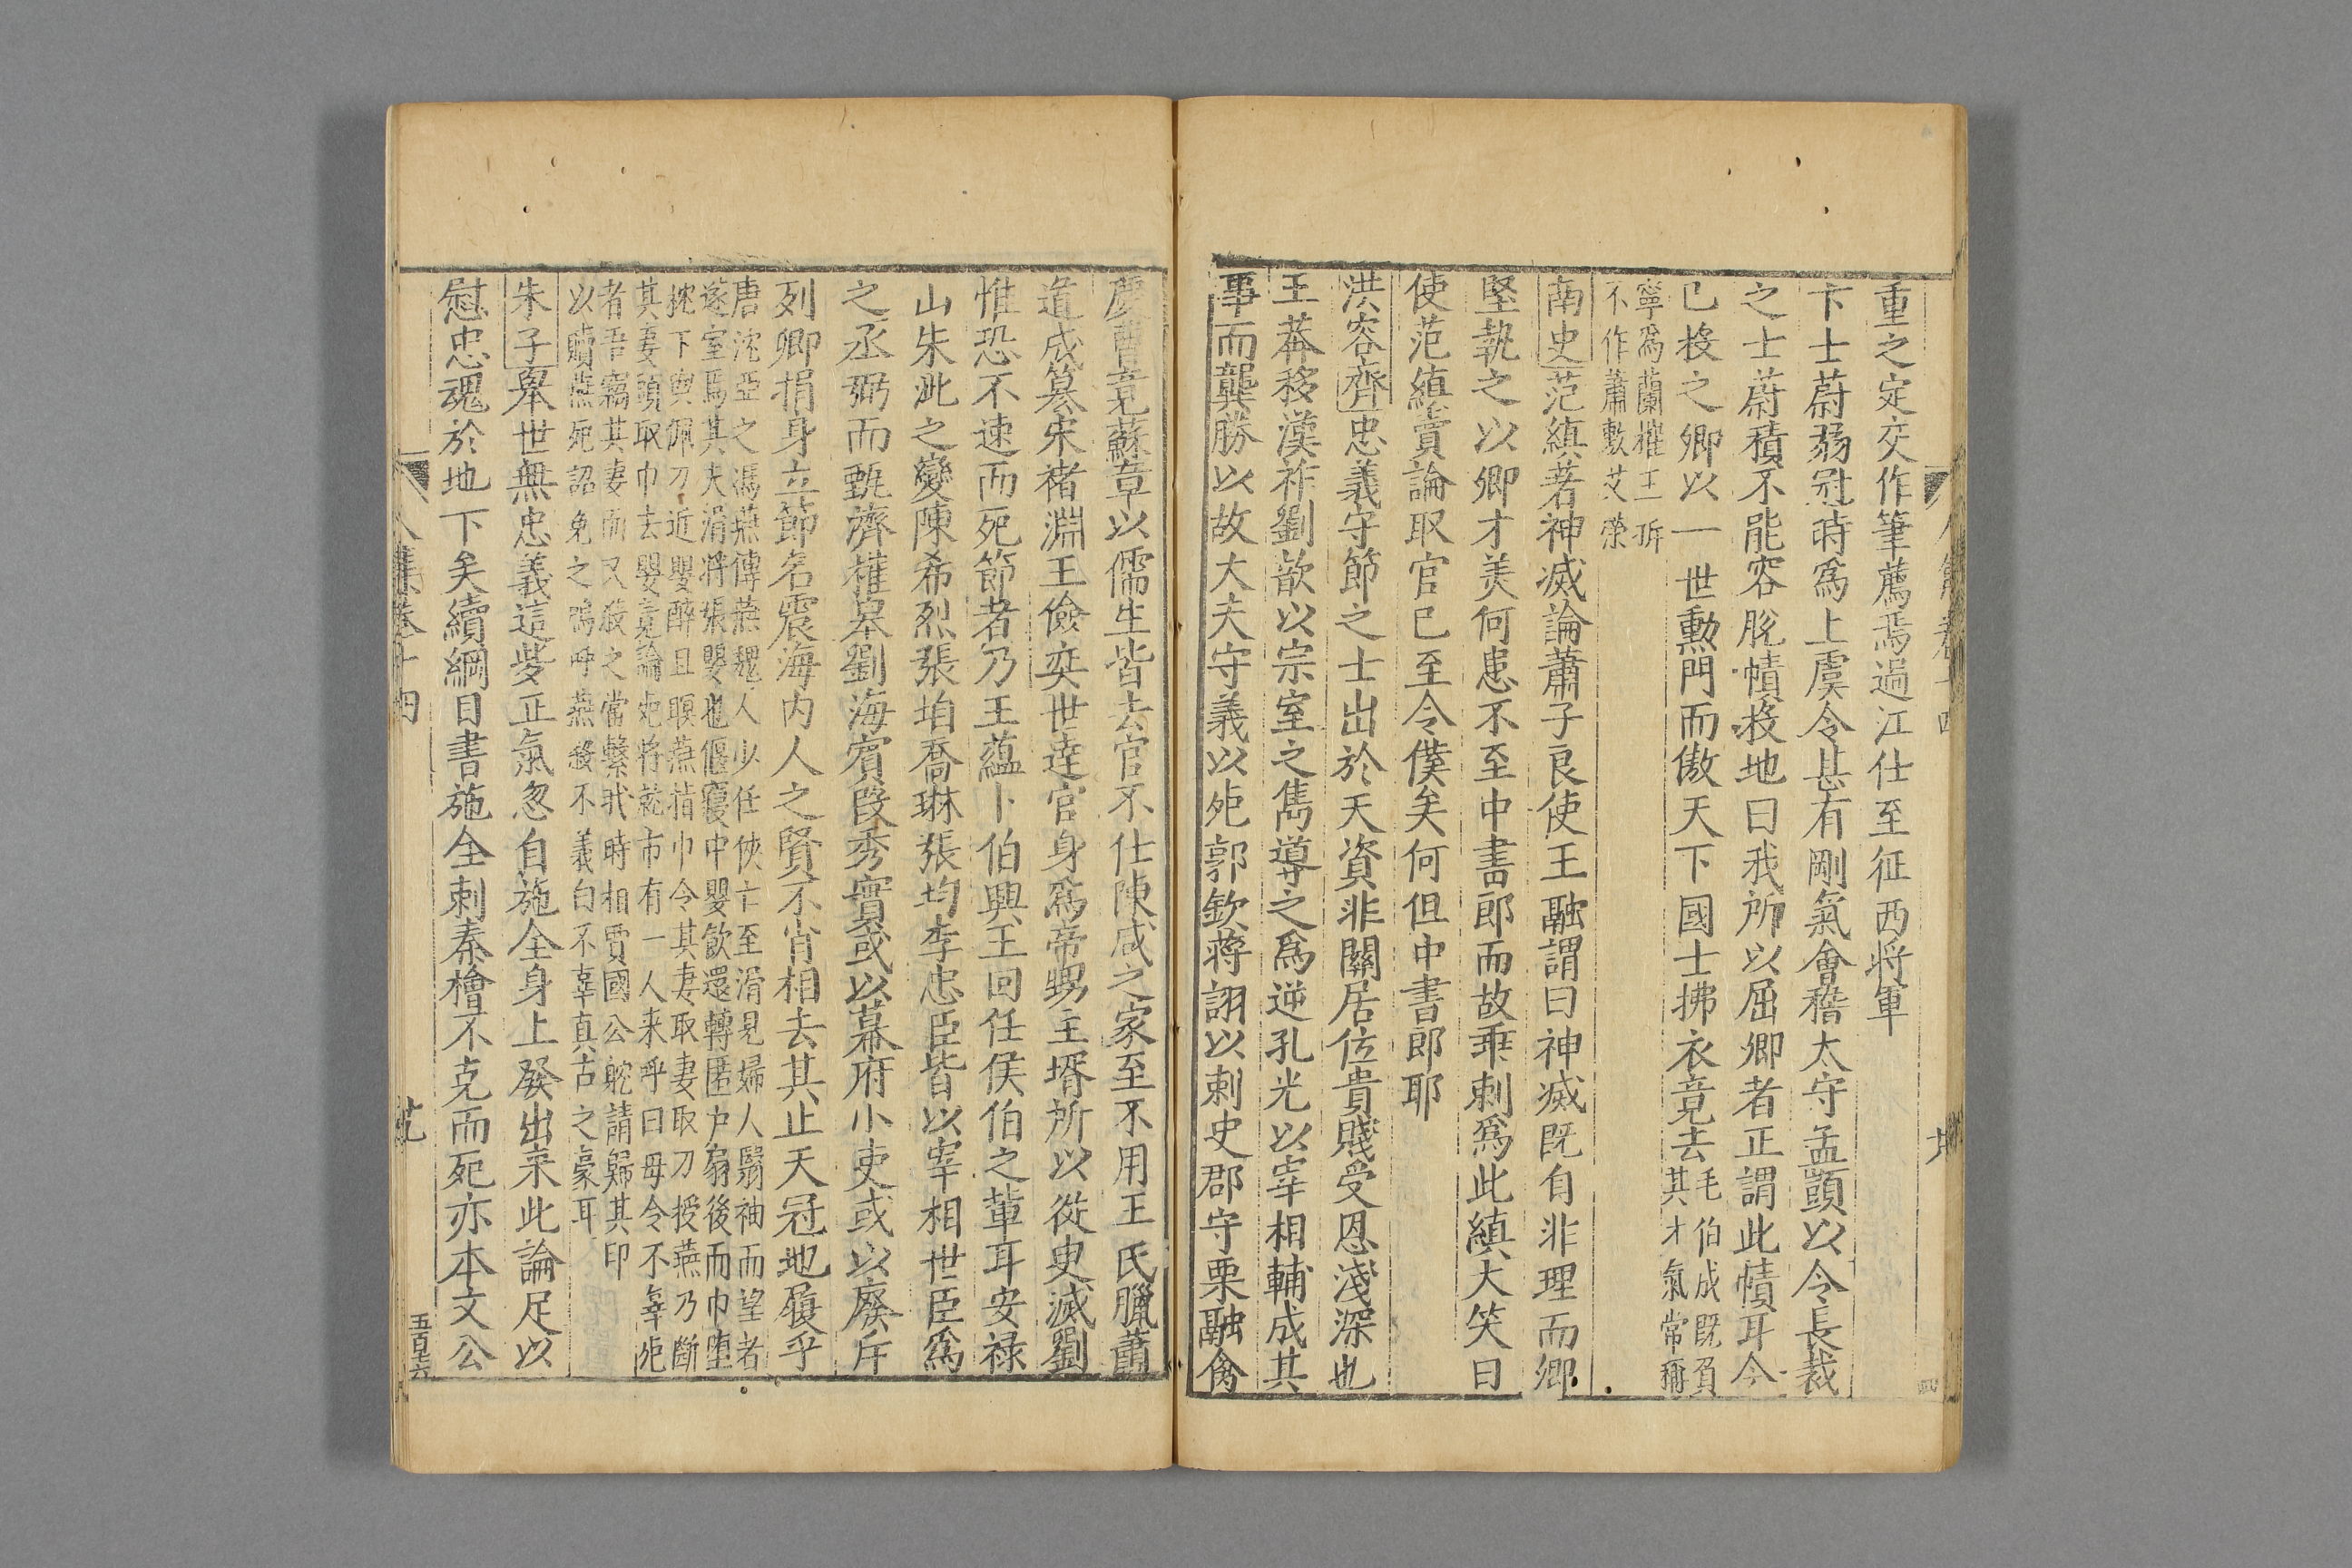 重之定交作筆薦焉過江仕至征西將軍
卞士蔚弱冠時爲上虞令甚有剛氣會稽太守孟顗以令長裁
之士蔚積不能容脫幘投地曰我所以屈卿者正謂此幘耳今
已投之卿以一世勲門而傲天下國士拂衣竟去
毛伯成既負
其才氣常稱
寧爲蘭摧玉折
不作蕭敷艾榮
南史范縝著神滅論蕭子良使王融謂曰神滅既自非理而卿
堅執之以卿才美何患不至中書郎而故乖剌爲此縝大笑曰
使范縝賣論取官已至令僕矣何但中書郎耶
洪容齊忠義守節之士出於天資非關居位貴賤受恩淺深也
王莽移漢祚劉歆以宗室之雋導之爲逆孔光以宰相輔成其
事而龔勝以故大夫守義以死郭欽蔣詡以刺史郡守栗融禽
慶曹竟蘇章以儒生皆去官不仕陳咸之家至不用王氏臘蕭
道成篡宋褚淵王儉奕世達官身爲帝甥主壻所以從臾滅劉
惟恐不速而死節者乃王蘊卜伯興王回任侯伯之輩耳安禄
山朱泚之變陳希烈張垍喬琳張均李忠臣皆以宰相世臣爲
之丞弼而甄濟權皋劉海賓段秀實或以幕府小吏或以廢斥
列卿捐身立節名震海内人之賢不肖相去其止天冠地履乎
唐沈亞之馮燕傳燕魏人少任俠亡至滑見婦人翳袖而望者
遂室焉其夫滑將張嬰也偃寢中嬰飲還轉匿户扇後而巾墮
枕下與佩刀近嬰醉且瞑燕指巾令其妻取妻取刀授燕乃斷
其妻頸取巾去嬰竟論死將就市有一人来呼曰毋令不辜死
者吾竊其妻而又殺之當繫我時相賈國公躭請歸其印
以贖燕死詔免之嗚呼燕殺不義白不辜真古之豪耳
朱子舉世無忠義這㱏正氣忽自施全身上發出来此論足以
慰忠魂於地下矣續綱目書施全刺秦檜不克而死亦本文公
八集卷十四
五百七六